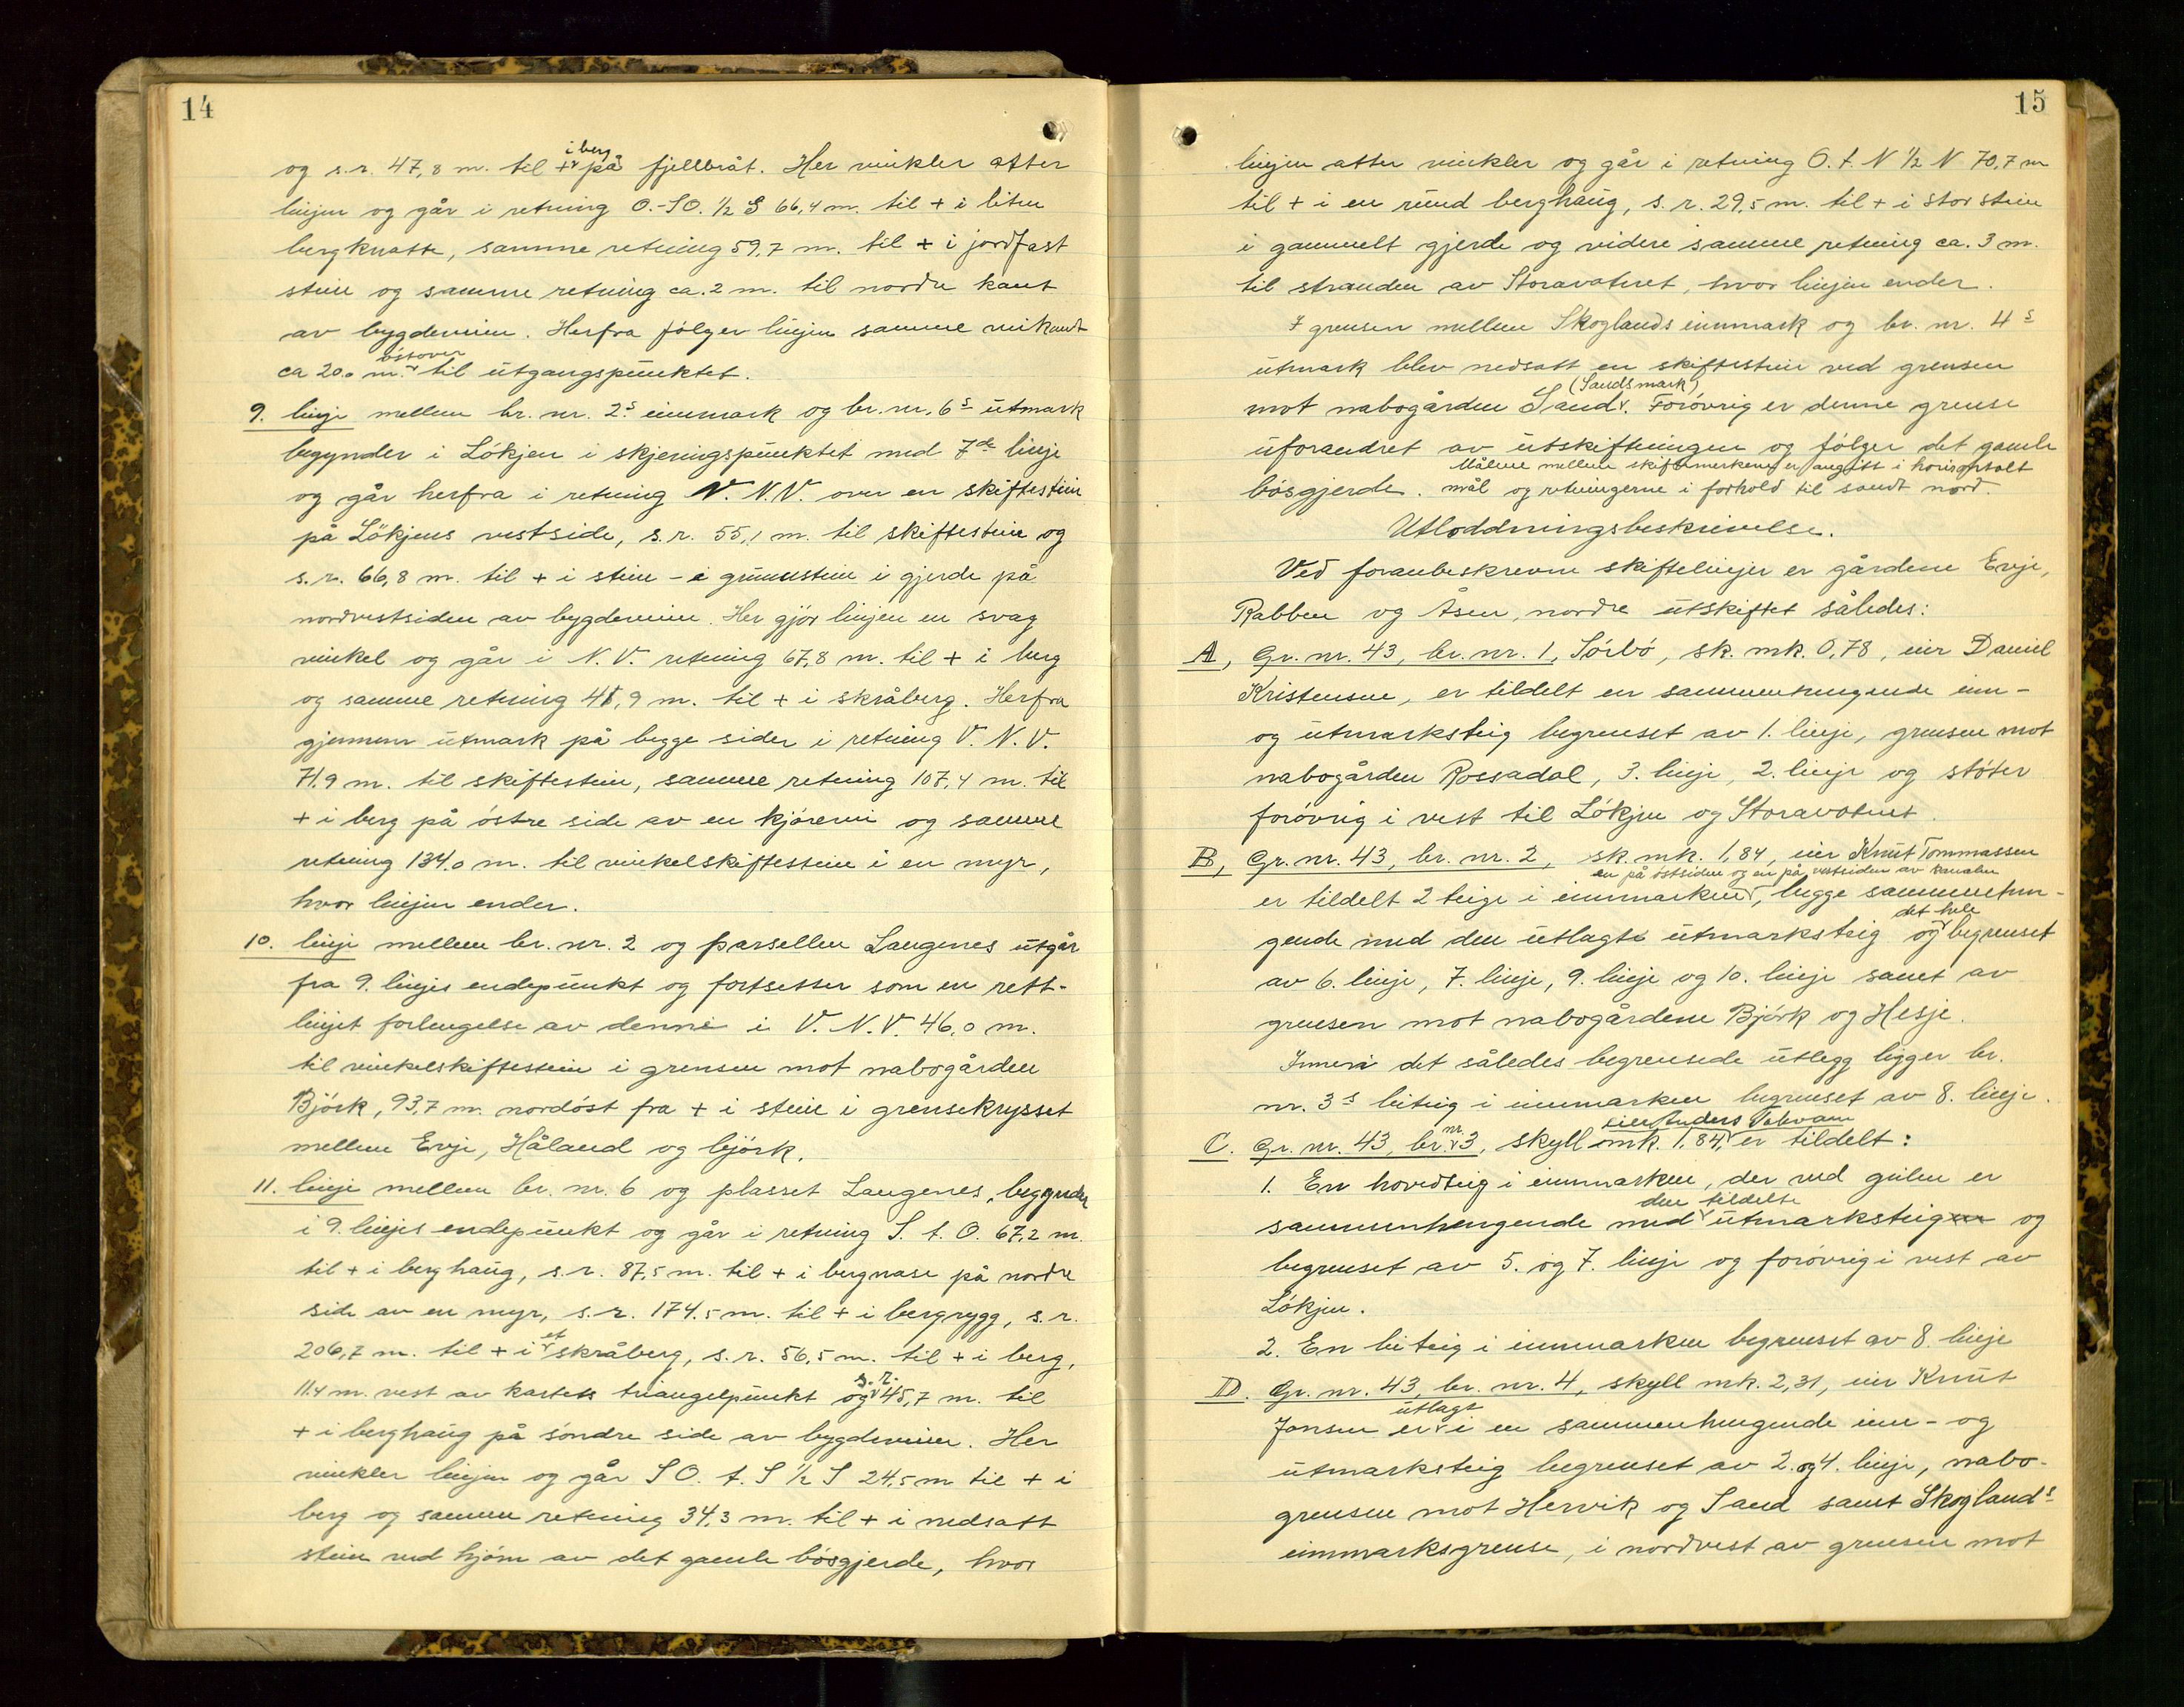 14
og s.r. 47,8 m. til + i berg på fjellbråt. Her vinkler atter
linjen og går i retning O.-SO. ½ S 66,4 m. til + i liten
bergknatte, samme retning 59,7 m. til + i jordfast
stein og samme retning ca. 2 m. til nordre kant
av bygdeveien. Herfra følger linjen samme veikant
ca 20,0 m. østover til utgangspunktet.
9. linje mellem br. nr. 2s innmark og br. nr. 6s utmark
begynder i Løkjen i skjeringspunktet med 7de linje
og går herfra i retning V. N.V. over en skiftestein
på Løkjens vestside, s.r. 55,1 m. til skiftestein og
s.r. 66,8 m. til + i stein - i grunnstein i gjerde på
nordvestsiden av bygdeveien. Her gjør linjen en svag
vinkel og går i N.V. retning 67,8 m. til + i berg
og samme retning 41,9 m. til + i skråberg. Herfra
gjennem utmark på begge sider i retning V. N.V.
71.9 m. til skiftestein, samme retning 107,4 m. til
+ i berg på østre side av en kjørevei og samme
retning 134,0 m. til vinkelskiftestein i en myr,
hvor linjen ender.
10. linje mellem br. nr. 2 og parsellen Laugenes utgår
fra 9. linjes endepunkt og fortsetter som en rett-
linjet forlengelse av denne i V. N.V. 46,0 m.
til vinkelskiftestein i grensen mot nabogården
Bjørk, 93,7 m. nordøst fra + i stein i grensekrysset
mellem Evje, Håland og bjørk.
11. linje mellem br. nr. 6 og plasset Laugenes, begynder
i 9. linjes endepunkt og går i retning S. t. O. 67,2 m.
til + i berghaug, s.r. 87,5 m. til + i bergnase på nordre
side av en myr, s.r. 174.5 m. til + i bergrygg, s.r.
206,7 m. til + i et skråberg, s.r. 56,5 m. til + i berg,
11.4 m. vest av kartets triangelpunkt og s.r. 45,7 m. til
+ i berghaug på søndre side av bygdeveien. Her
vinkler linjen og går SO. t. S ½ S 24,5 m til + i
berg og samme retning 34,3 m. til + i nedsatt
stein ved hjørn av det gamle bøsgjerde, hvor
15
linjen atter vinkler og går i retning O. t. N ½ N 70,7 m
til + i en rund berghaug, s.r. 29,5 m. til + i stor stein
i gammelt gjerde og videre samme retning ca. 3 m.
til stranden av Storavatnet, hvor linjen ender.
I grensen mellem Skoglands innmark og br. nr. 4s
utmark blev nedsatt en skiftestein ved grensen
mot nabogården Sand (Sandsmark). Forøvrig er denne grense
uforandret av utskiftningen og følger det gamle
bøsgjerde. Målene mellem skiftemerkene er angitt i horisontalt
mål og retningerne i forhold til sandt nord.
Utloddningsbeskrivelse.
Ved foranbeskrevne skiftelinjer er gårdene Evje,
Rabben og Åsen, nordre utskiftet således:
A, Gr. nr. 43, br. nr. 1, Sørbø, sk. mk. 0,78, eier Daniel
Kristensen, er tildelt en sammenhengende inn-
og utmarksteig begrenset av 1. linje, grensen mot
nabogården Rossadal, 3. linje, 2. linje og støter
forøvrig i vest til Løkjen og Storavatnet.
B, Gr. nr. 43, br. nr. 2, sk. mk. 1,84, eier Knut Tommassen
er tildelt 2 teige i innmarken, en på østsiden og en på vestsiden av kanalen begge sammenhen-
gende med den utlagte utmarksteig og det hele begrenset
av 6. linje, 7. linje, 9. linje og 10. linje samt av
grensen mot nabogårdene Bjørk og Hesje.
Inneri det således begrensede utlegg ligger br.
nr. 3s biteig i innmarken begrenset av 8. linje.
C. Gr. nr. 43, br. nr. 3, skyll mk. 1,84, eier Anders er tildelt:
1. En hovedteig i innmarken, der ved geilen er
sammenhengende med den tildelte utmarksteig og
begrenset av 5. og 7. linje og forøvrig i vest av
Løkjen.
2. En biteig i innmarken begrenset av 8. linje
D. Gr. nr. 43, br. nr. 4, skyll mk. 2,31, eier Knut
Jonsen er utlagt i en sammenhengende inn- og
utmarksteig begrenset av 2. og 4. linje, nabo-
grensen mot Hervik og Sand samt Skoglands
innmarksgrense, i nordvest av grensen mot